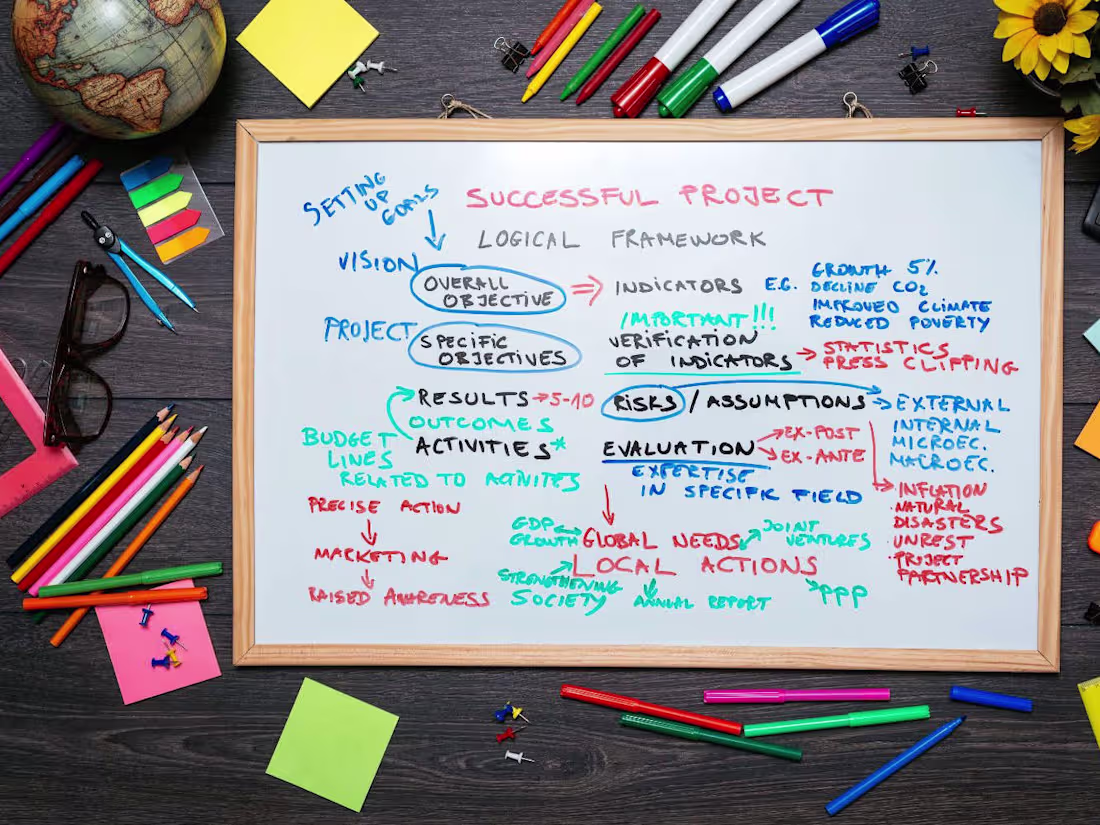 SETTING
UP
GOALS
SUCCESSFUL PROJECT
LOGICAL FRAMEWORK
VISION
OVERALL
OBJECTIVE
INDICATORS E.G.
GROWTH 5%
DECLINE CO2
IMPROVED CLIMATE
REDUCED POVERTY
PROJECT
SPECIFIC
OBJECTIVES
IMPORTANT!!!
VERIFICATION
OF INDICATORS
STATISTICS
PRESS CLIPPING
RESULTS → 5-10
OUTCOMES
ACTIVITIES*
BUDGET
LINES
RELATED TO ACTIVITES
RISKS / ASSUMPTIONS
EXTERNAL
INTERNAL
MICROEC.
MACROEC.
EVALUATION
EX-POST
EX-ANTE
EXPERTISE
IN SPECIFIC FIELD
INFLATION
NATURAL
DISASTERS
UNREST
PROJECT
PARTNERSHIP
PRECISE ACTION
MARKETING
RAISED AWARENESS
GDP
GROWTH
GLOBAL NEEDS
LOCAL ACTIONS
JOINT
VENTURES
STRENGTHENING
SOCIETY
ANNUAL REPORT
PPP